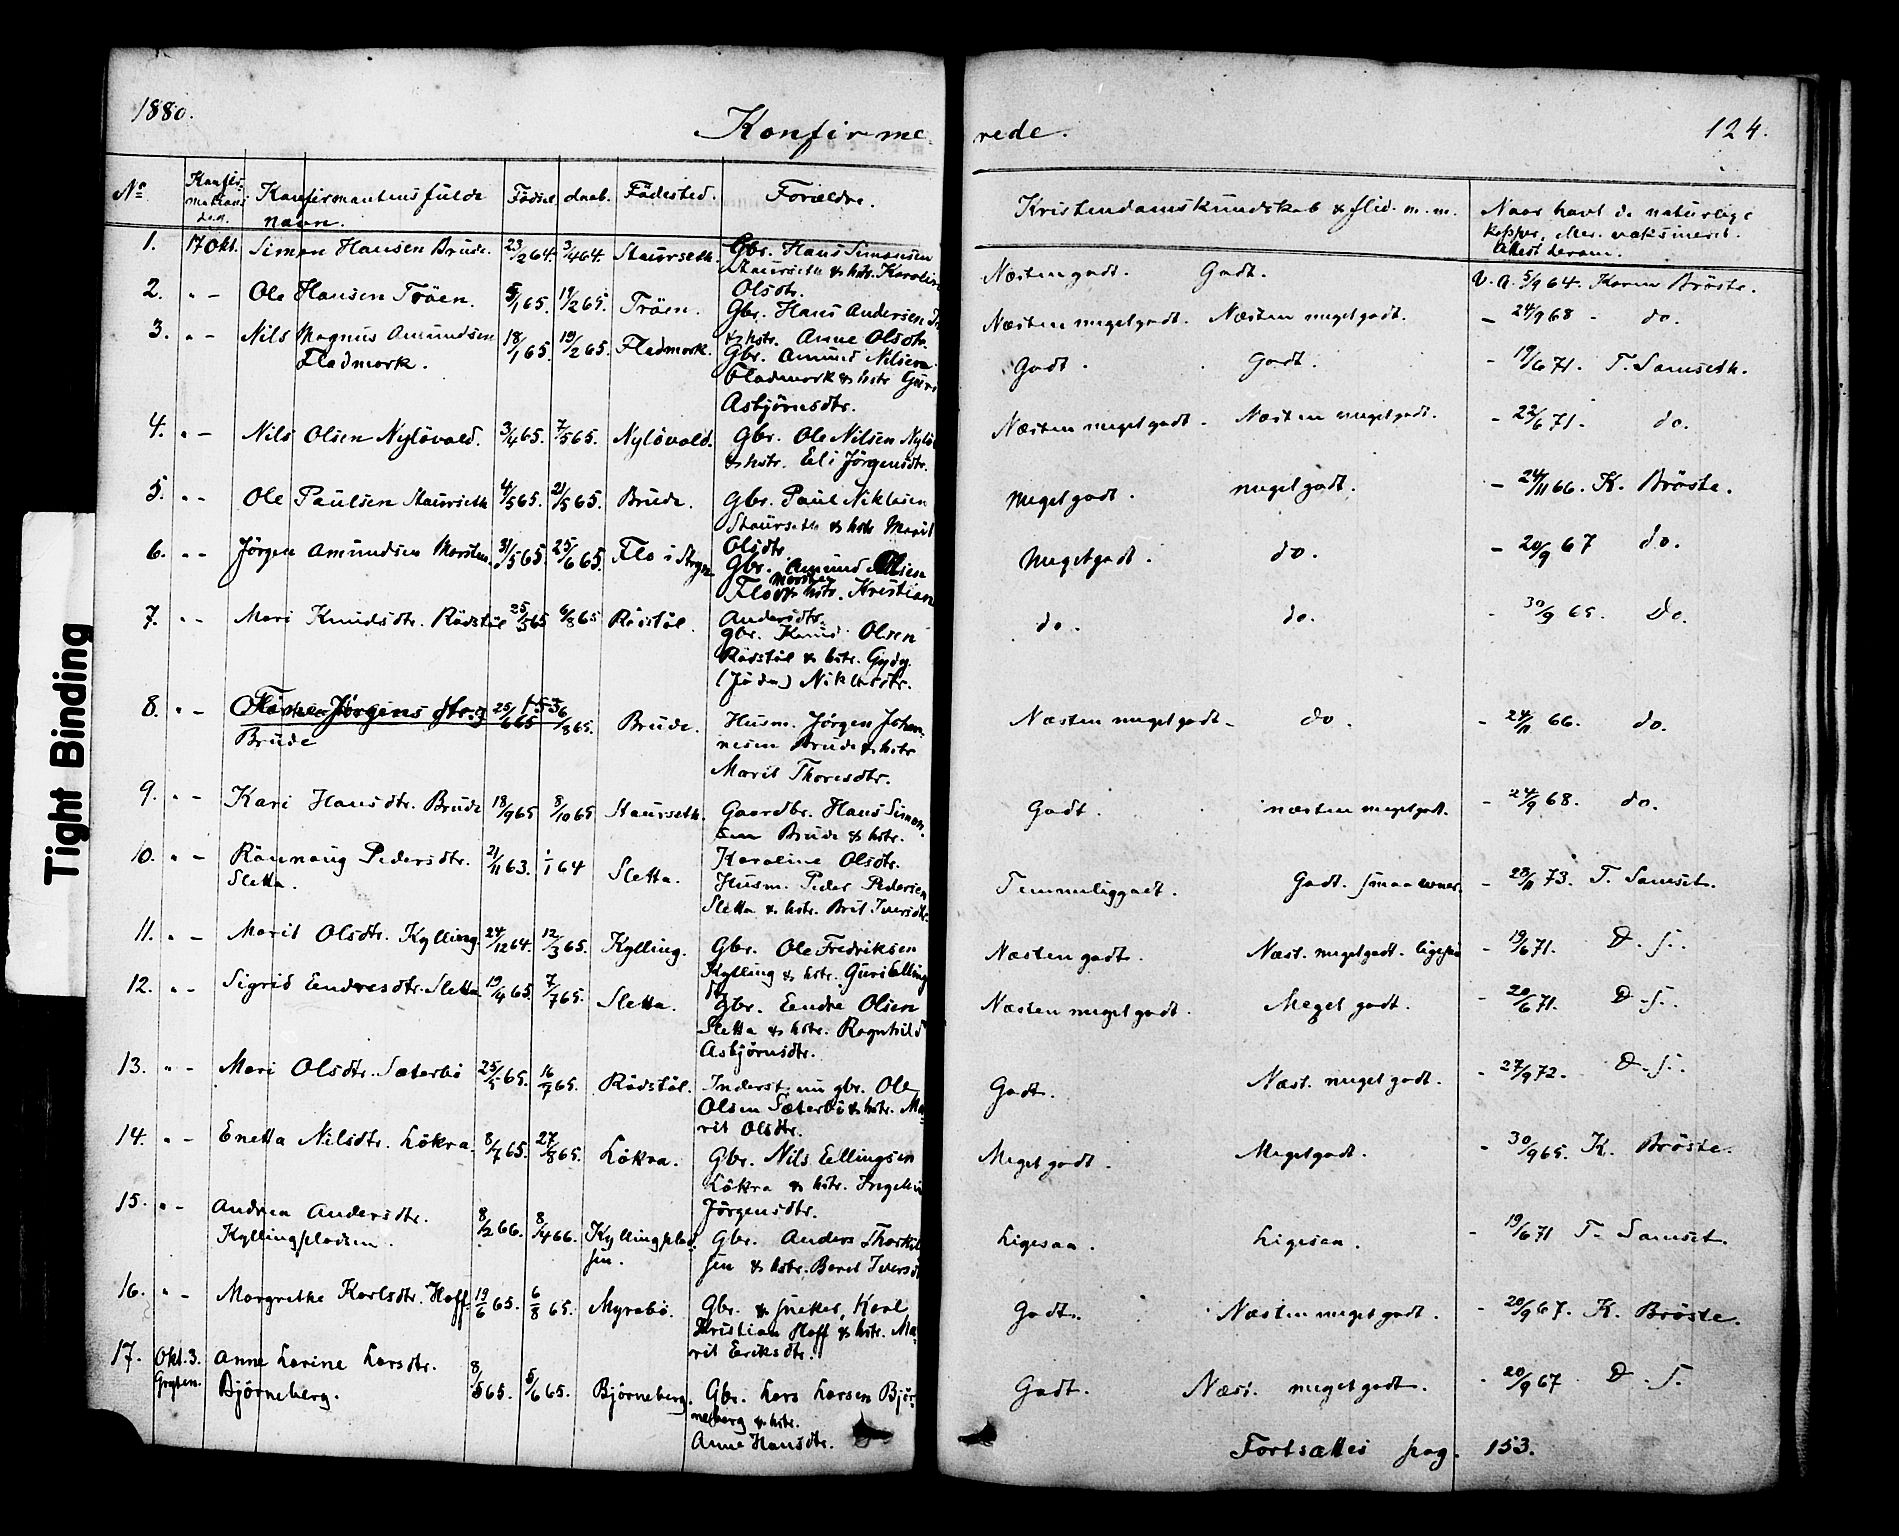 1880.
Konfirme-
rede.
124.
No
Konfir-
mations
dag.
Konfirmantens fulde
navn.
Födsel
daab.
Födested.
Forældre.
Kristendomskundskab & flid. m. m.
Naar havt de naturlige
kopper, eller vaksineret.
Attest derom.
1. 17 Okt. Simon Hansen Brude. 23/2 64. 3/4 64. Staurseth. Gbr. Hans Simonsen
Staurseth & hstr. Karoline
Olsdtr.
Næsten godt. Godt. V. A. 5/9 64. Karen Bröste.
2. " - Ole Hansen Tröen. 8/1 65. 19/2 65. Tröen. Gbr. Hans Andersen
& hstr. Anne Olsdtr.
Næsten megetgodt. Næsten megetgodt. - 24/9 68 - do.
3. " - Nils Magnus Amundsen 18/1 65. 19/2 65. Fladmork. Gbr. Amund Nilsen
Fladmork.
Fladmork & hstr Guri
Asbjörnsdtr.
Godt. Godt. - 19/6 71. T. Samseth.
4. " - Nils Olsen Nylövold. 3/4 65. 7/5 65. Nylövold. Gbr. Ole Nilsen
& hstr. Eli Jörgensdtr.
Næsten megetgodt. Næsten megetgodt. - 22/6 71. do.
5. " - Ole Paulsen Staurseth 4/5 65. 21/5 65. Brude. Gbr. Paul Niklesen
Staurseth & hstr Marit
Olsdtr.
Megetgodt. megetgodt. - 24/11 66. K. Bröste.
6. " - Jörgen Amundsen Morsten. 31/5 65. 25/6 65. Flo i Stryn Gbr. Amund
Morsten
Flo & hstr. Kristian
Andersdtr.
Megetgodt. do. - 20/9 67 do.
7. " - Mari Knudsdtr. Rödstöl 25/5 65 6/8 65 Rödstöl. gbr. Knud Olsen
Rödstöl & hstr. Gydy.
(Jöda) Niklesdtr.
do. do. - 30/9 65. Do.
8. " - Jörgens dtr. 153 25/6 65 6/8 65. Brude. Husm. Jörgen Johan-
Brude
nesen Brude & hstr
Marit Thoresdtr.
Næsten megetgodt - do. - 24/11 66. do.
9. " - Kari Hansdtr. Brude 18/9 65 8/10 65 Staurseth. Gaardbr. Hans Simon-
sen Brude & hstr.
Karoline Olsdtr.
Godt. næsten megetgodt. - 24/9 68. do.
10. " - Rönnaug Pedersdtr. 21/11 63. 1/1 64 Sletta. Husm. Peder Pedersen
Sletta.
Sletta & hstr. Brit Iversdtr.
Temmeliggodt. Godt. smaa evner. - 28/11 73. T. Samset.
11. " - Marit Olsdtr. Kylling 24/12 64. 12/3 65. Kylling. Gbr. Ole Fredriksen
Kylling & hstr. Guri Elling
dtr.
Næsten godt. Næst. megetgodt. ligesaa - 19/6 71. D. S.
12. " - Sigrid Endresdtr. Sletta 19/4 65. 7/7 65. Sletta. Gbr. Endre Olsen
Sletta & hstr. Ragnhild
Asbjörnsdtr.
Næsten megetgodt. Meget godt. - 20/6 71. D. S.
13. " - Mari Olsdtr. Sæterbö 25/5 65. 16/7 65. Rödstöl. Inderst. nu gbr. Ole
Olsen Sæterbö & hstr. Ma-
rit Olsdtr.
Godt. Næst. megetgodt. - 27/9 72. D. S.
14. " - Enetta Nilsdtr. Lökra. 8/7 65. 27/8 65. Lökra. Gbr. Nils Ellingsen
Lökra & hstr.
Jörgensdtr.
Megetgodt. Megetgodt. - 30/9 65. K. Bröste.
15. " - Andrea Andersdtr. 8/2 66. 8/4 66. Kyllingplad- Gbr. Anders Thorkel
Kyllingpladsen. sen.
sen & hstr. Beret Iversd
Ligesaa. Ligesaa. - 19/6 71 T. Samset.
16. " - Margrethe Karlsdtr. Hoff 19/6 65. 6/8 65. Myrebö. Gbr. & snekker, Karl
Kristian Hoff & hstr. Ma-
rit Eriksdtr.
Godt. Næsten megetgodt. - 20/9 67. K. Bröste.
17. Okt. 3. Anne Larine Larsdtr. 8/5 65. 5/6 65. Björneberg. Gbr. Lars Larsen Björ-
Gryten. Björneberg.
neberg & hstr.
Anne Hansdtr.
Godt. Næst. megetgodt. - 20/9 67 D. S.
Fortsættes pag. 153.
Tight Binding